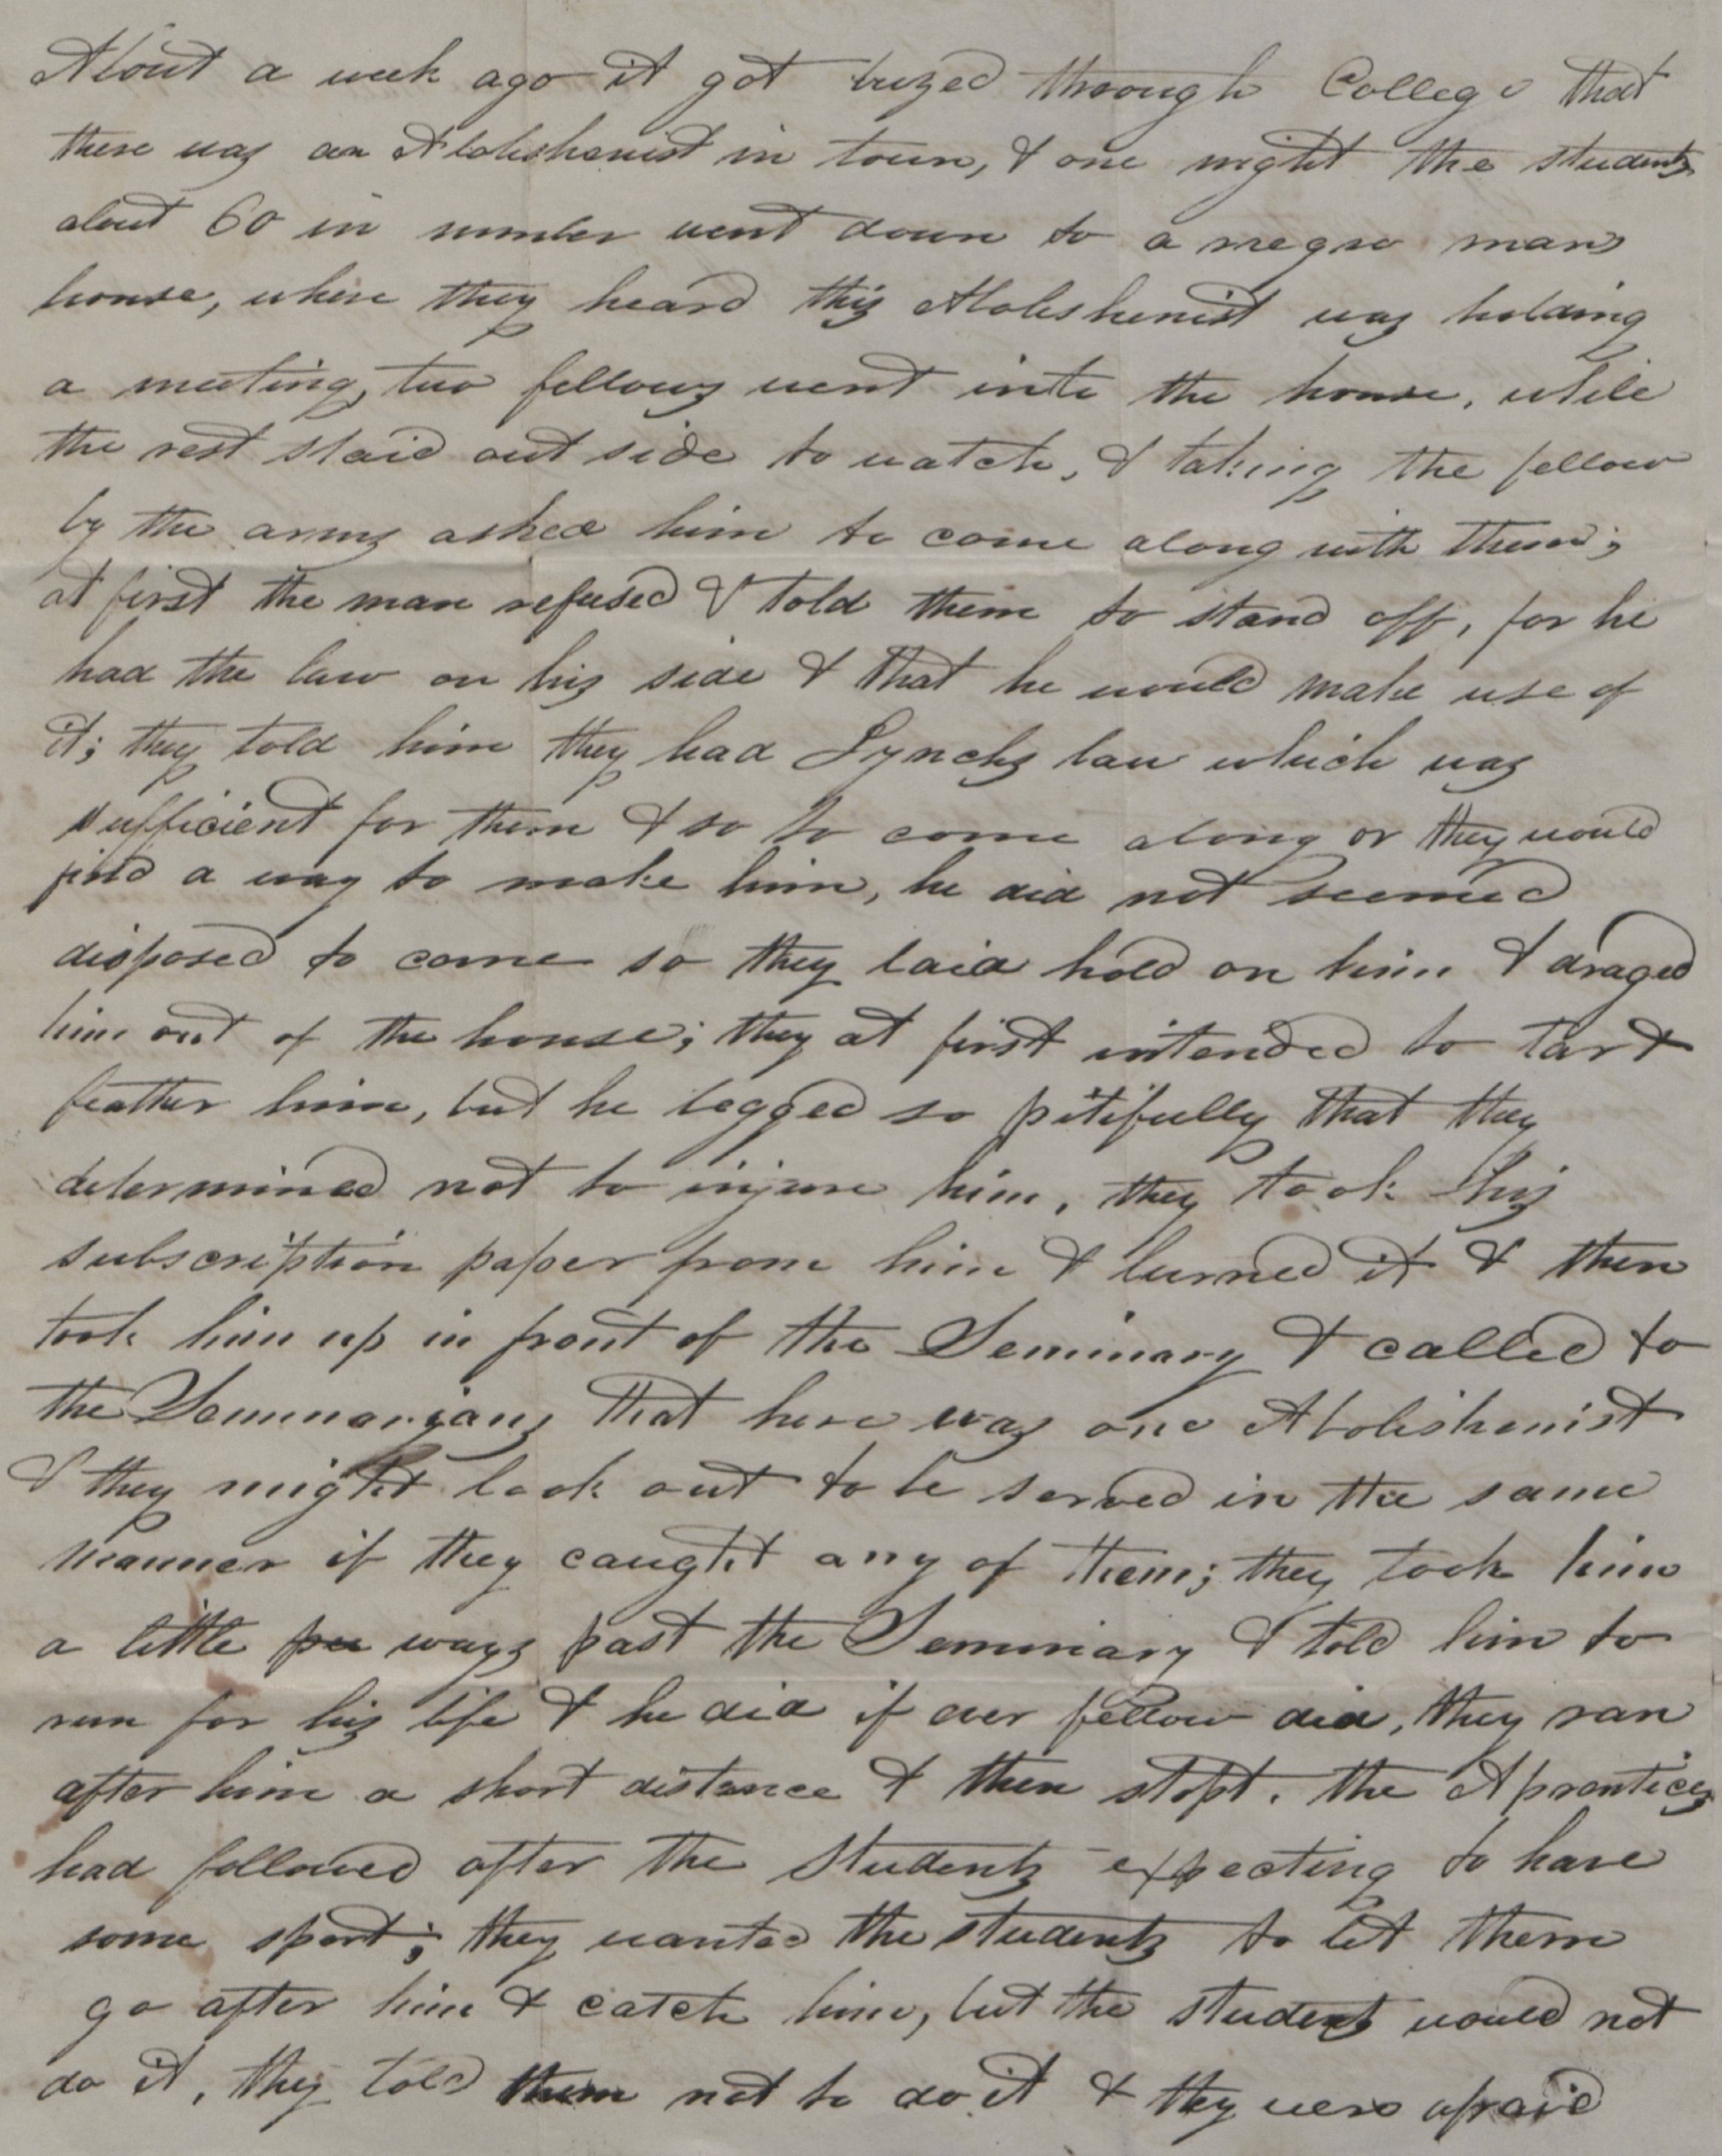 About a week ago it got buzed through College that
there was an Abolishenist in town, & one night the students
about 60 in number went down to a negro mans
house, where they heard this Abolishenist was holding
a meeting, two fellows went into the house, while
the rest staid out side to watch, & taking the fellow
by the arms asked him to come along with them;
at first the man refused & told them to stand off, for he
had the law on his side & that he would make use of
it; they told him they had Lynchs law which was
sufficient for them & so to come along or they would
find a way to make him, he did not seemed
disposed to come so they laid hold on him & draged
him out of the house; they at first intended to tar &
feather him, but he begged so pitifully that they
determined not to injure him, they took his
subscription paper from him & burned it & then
took him up in front of the Seminary & called to
the Seminarians that here was one Abolishenist
& they might look out to be served in the same
manner if they caught any of them; they took him
a little ways past the Seminary & told him to
run for his life & he did if ever fellow did, they ran
after him a short distance & then stopt. the Aprentices
had followed after the Students expecting to have
some sport; they wanted the students to let them
go after him & catch him, but the students would not
do it, they told them not to do it & they were afraid